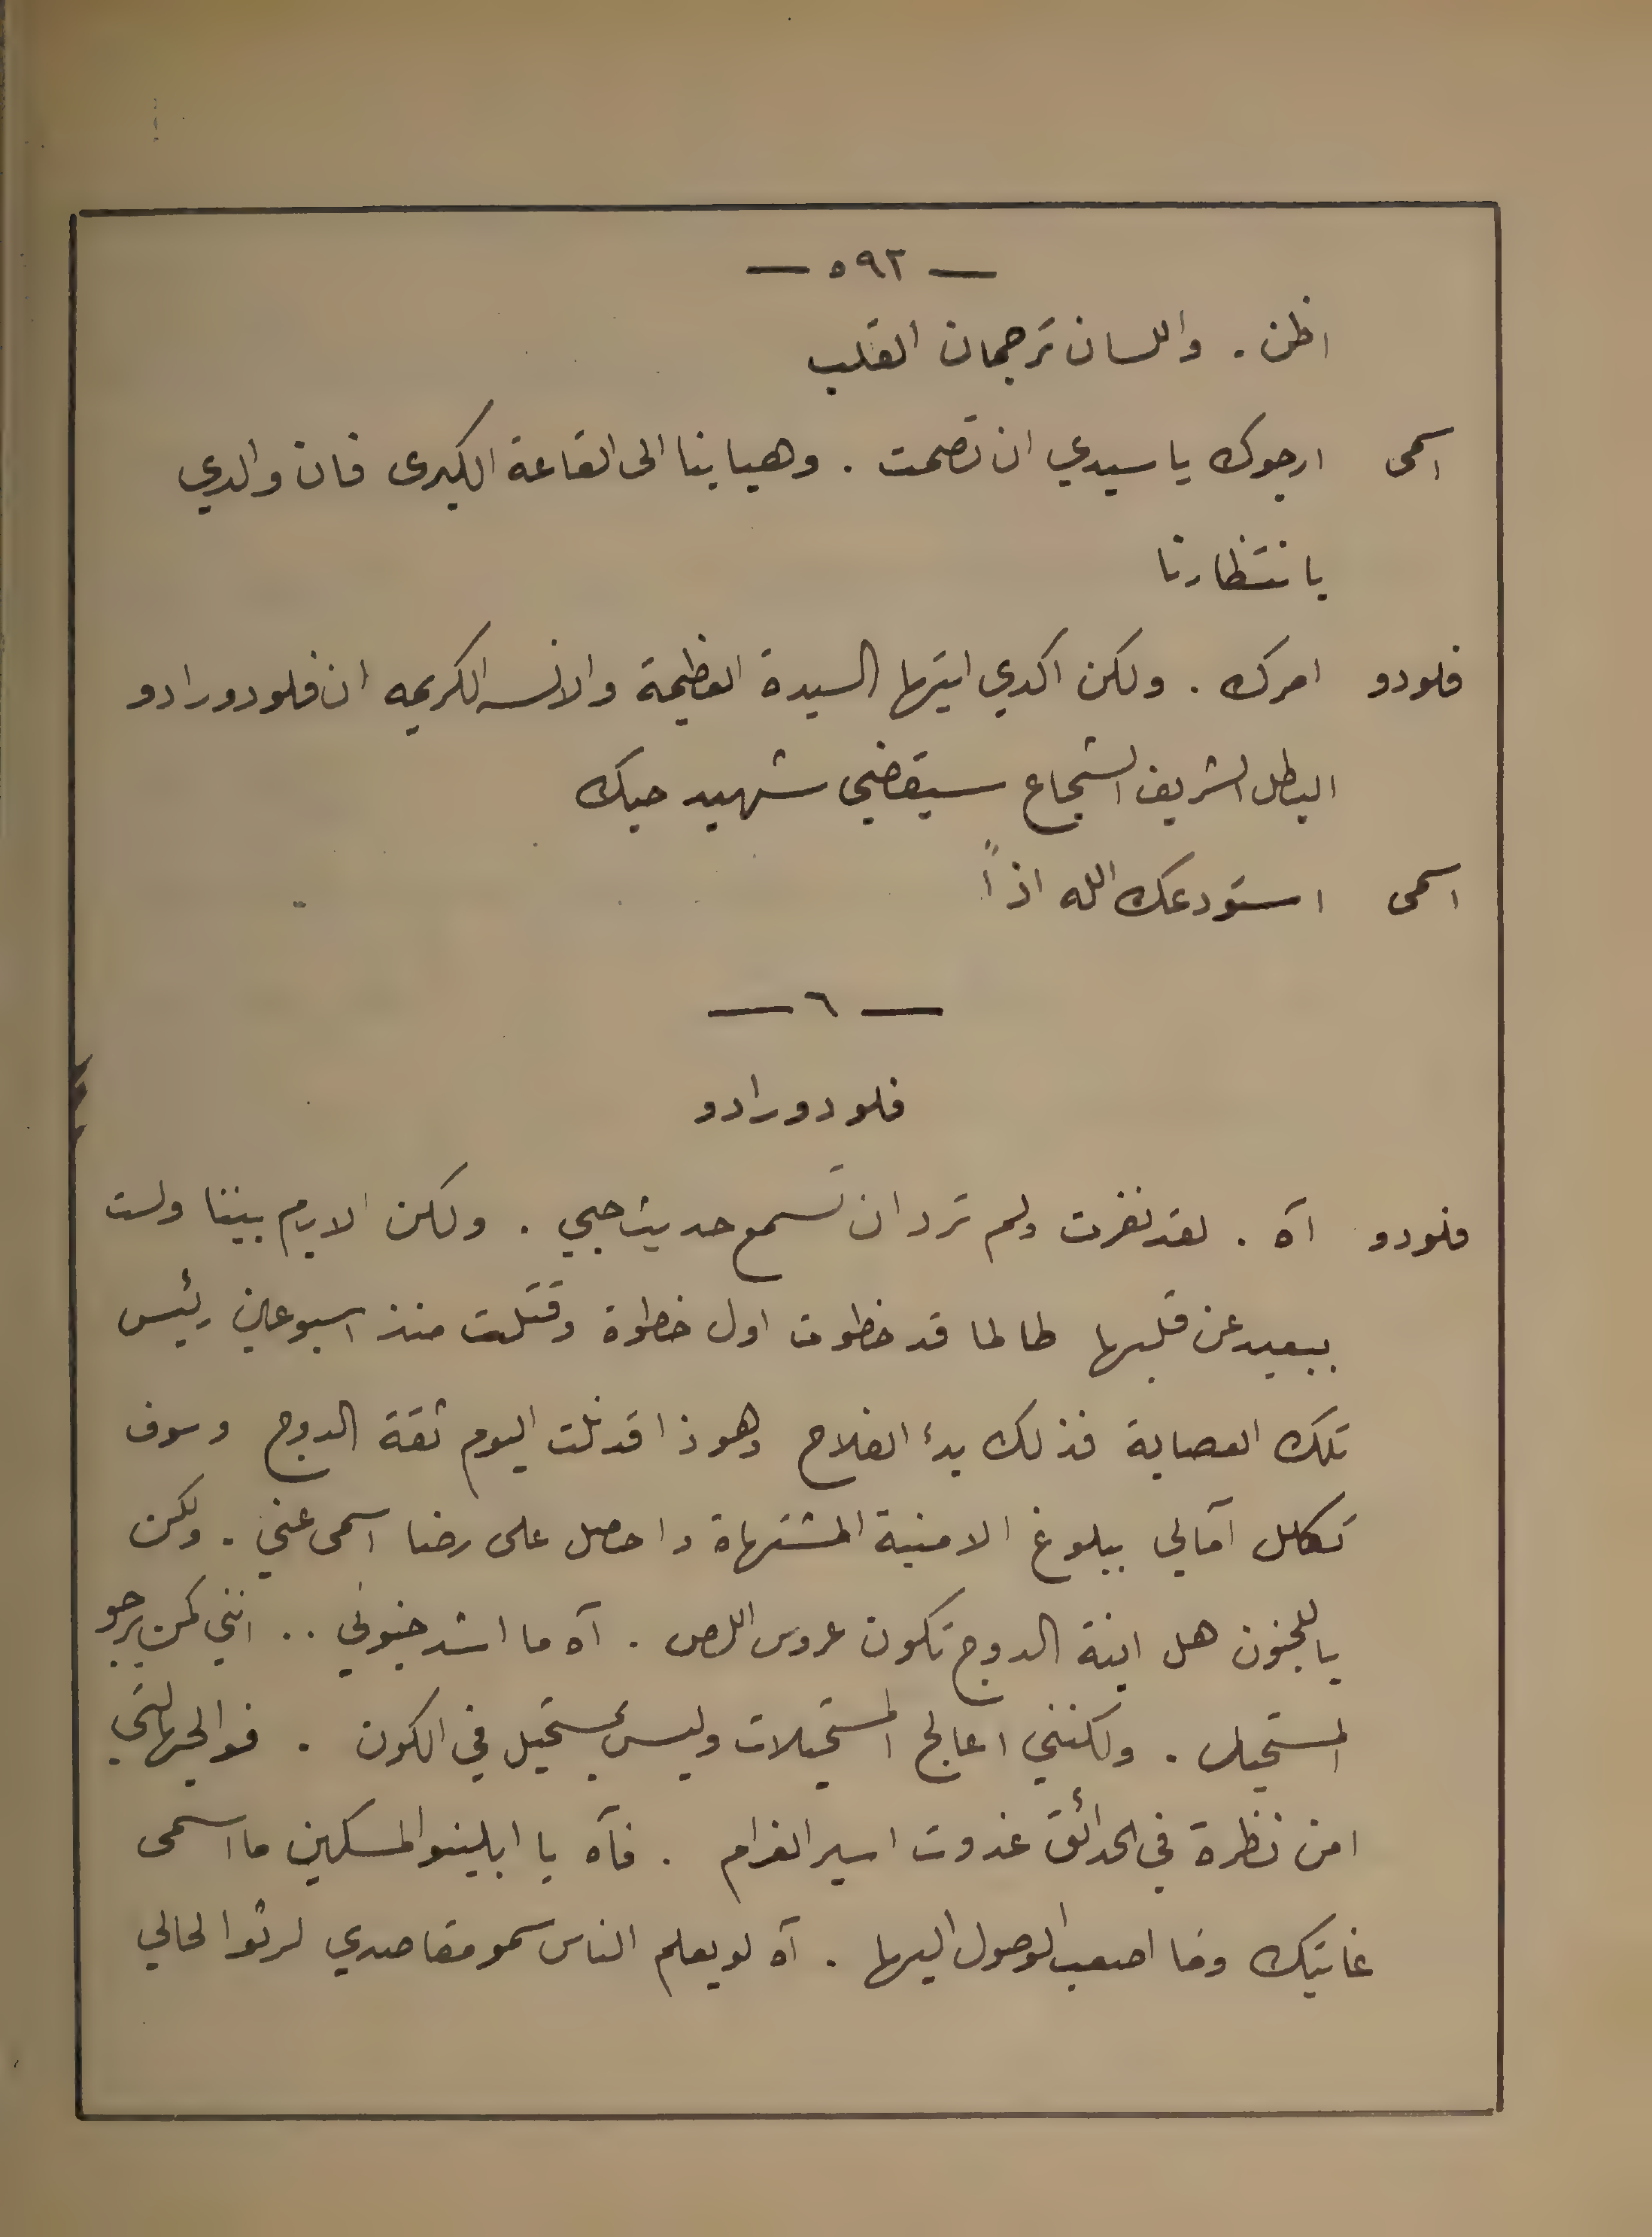 — ٥٩٢ —
اظن . واللسان ترجمان القلب
اسمى ارجوك يا سيدي ان تصمت . وهيا بنا الى القاعة الكبرى فان والدي
بانتظارنا
فلودو امرك . ولكن اكدي ايتها السيدة العظيمة والانسه الكريمه ان فلودورادو
البطل الشريف الشجاع سيقضي شهيد حبك
اسمى استودعك الله اذاً
— ٦ —
فلودورادو
فلودو آه . لقد نفرت ولم ترد ان تسمع حديث حبي . ولكن الايام بيننا ولست
ببعيد عن قلبها طالما قد خطوت اول خطوة وقتلت منذ اسبوعين رئيس
تلك العصابة فذلك بدء الفلاح وهوذا قد نلت اليوم ثقة الدوج وسوف
تكلل آمالي ببلوغ الامنية المشتهاة واحصل على رضا اسمى عني . ولكن
ياللجنون هل ابنة الدوج تكون عروس اللص . آه ما اشد جنوني .. انني كمن يرجو
المستحيل . ولكنني اعالج المستحيلات وليس بمستحيل في الكون . فوالجهالتي
امن نظرة في الحدائق غدوت اسير الغرام . فآه يا ابلينو المسكين ما اسمى
غايتك وما اصعب الوصول اليها . آه لو يعلم الناس سمو مقاصدي لرثوا لحالي